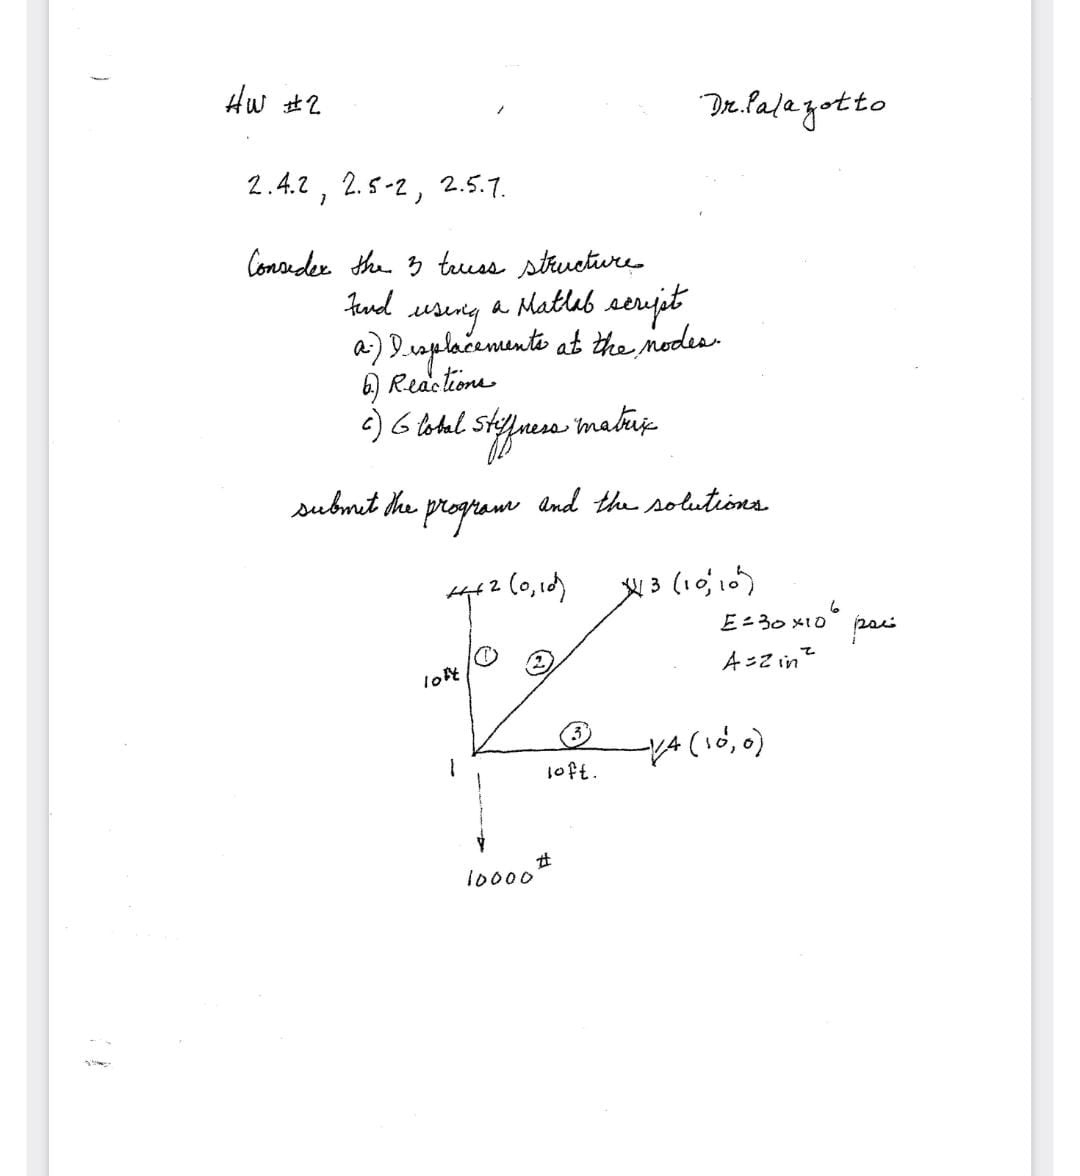 HW #2
Dr. Palazotto
2.4.2, 2.5-2, 2.5.7.
Consider the 3 truss structure
Find using a Matlab script
a.) Displacements at the nodes.
b) Reactions
c) Global stiffness matrix
submit the program and the solutions
2 (0,10')
3 (10',10')
E=30x10⁶ psi
A=2 in²
①
②
10ft
③
4 (10',0)
1
10ft.
10000#